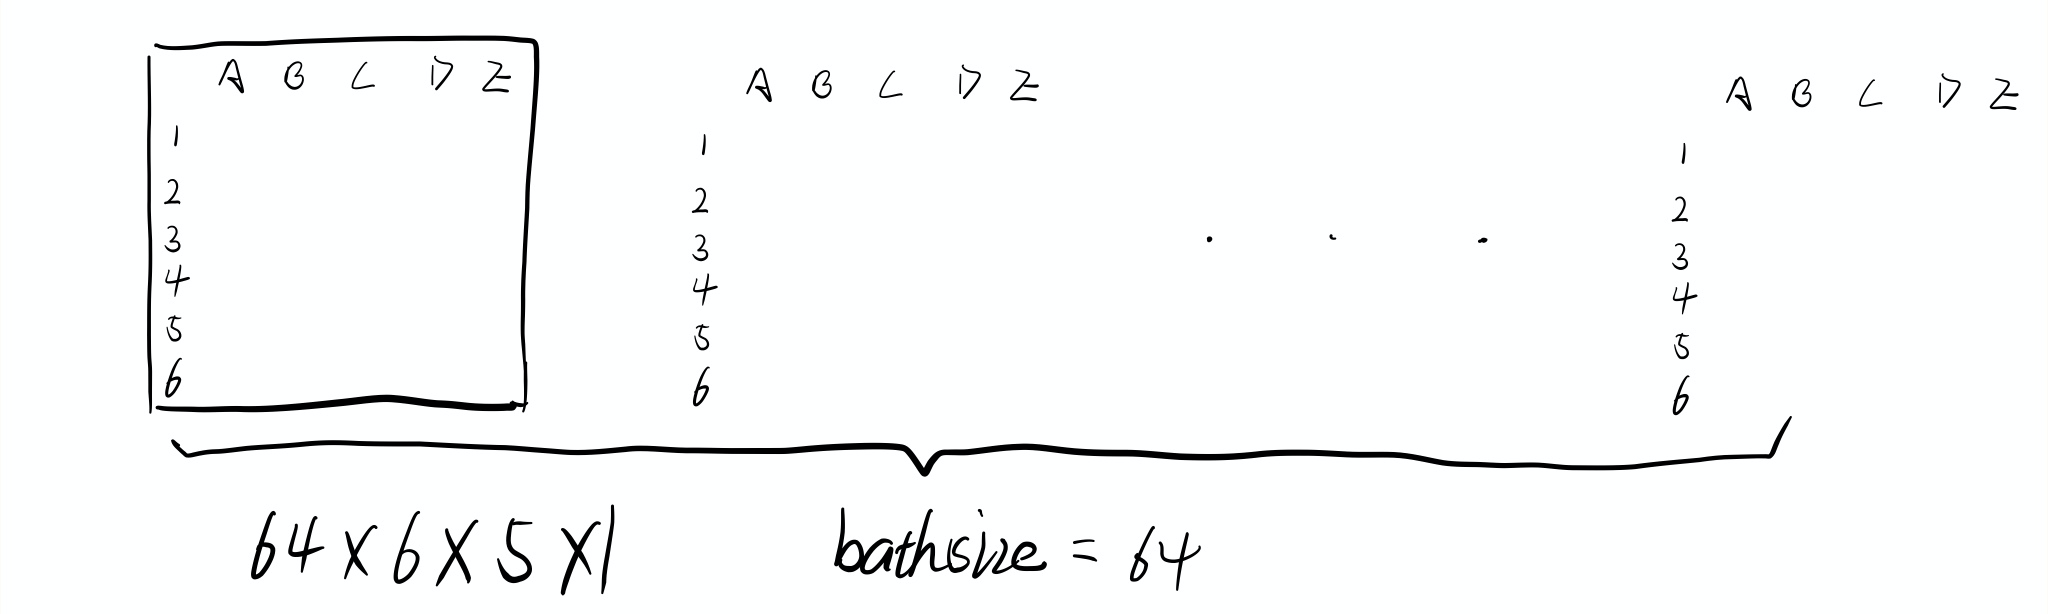 A B C D E
1
2
3
4
5
6
A B C D E
1
2
3
4
5
6
. . .
A B C D E
1
2
3
4
5
6
64 X 6 X 5 X 1
bathsize = 64